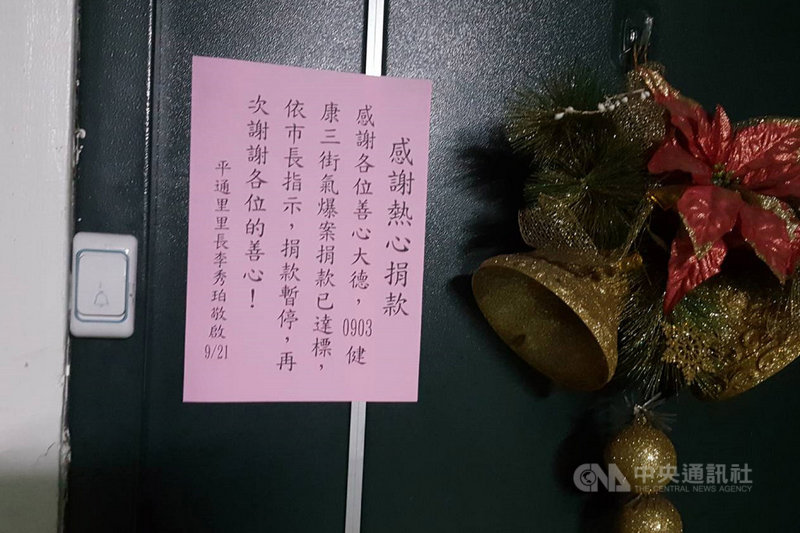 感謝熱心捐款
感謝各位善心大德，0903健
康三街氣爆案捐款已達標，
依市長指示，捐款暫停，再
次謝謝各位的善心！
平通里里長李秀珀敬啟
9/21
CNA 中央通訊社
THE CENTRAL NEWS AGENCY